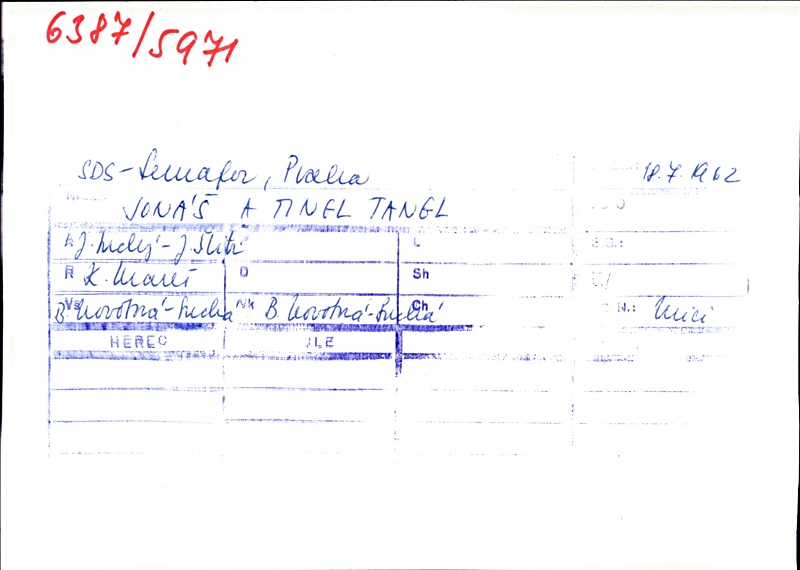 6387/5971
SDS-Semafor, Praha 18.7.1962
JONÁŠ A TINEL TANGL
A J. Suchý - J. Šlitr L S.D.:
R K. Mareš D Sh
Vs B. Novotná-Suchá Nk B. Novotná-Suchá Ch N.:
HEREC